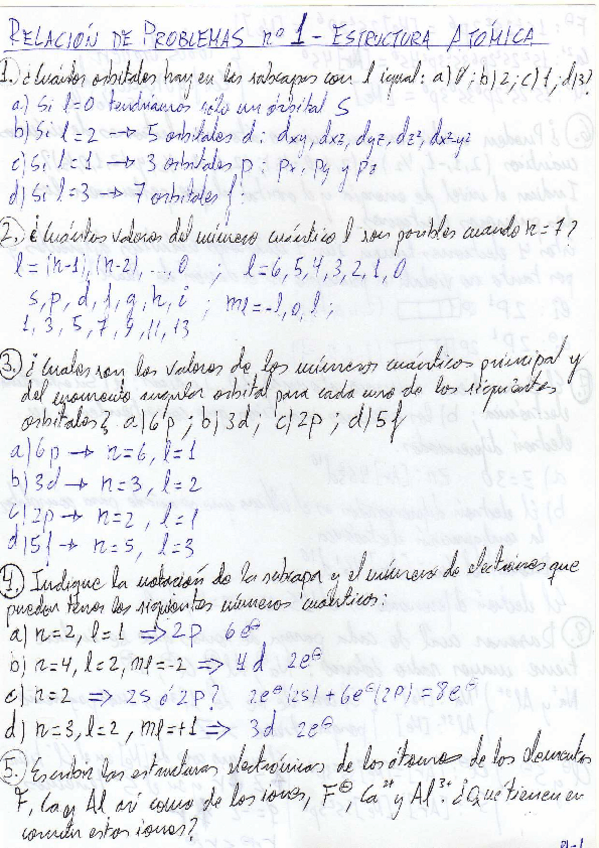 RELACIÓN DE PROBLEMAS nº 1 - ESTRUCTURA ATOMICA
1. ¿Cuántos orbitales hay en las subcapas con l igual: a) 0; b) 2; c) 1; d) 3?
a) Si l=0 tendríamos sólo un órbital S
b) Si l=2 → 5 orbitales d: dxy, dxz, dyz, dz², dx²-y²
c) Si l=1 → 3 orbitales p: px, py y pz
d) Si l=3 → 7 orbitales f
2. ¿Cuántos valores del número cuántico l son posibles cuando n=7?
l=(n-1), (n-2), ..., 0 ; l=6, 5, 4, 3, 2, 1, 0
s, p, d, f, g, h, i ; ml=-l, 0, l;
1, 3, 5, 7, 9, 11, 13
3. ¿Cuales son los valores de los números cuánticos principal y
del momento angular orbital para cada uno de los siguientes
orbitales? a) 6p; b) 3d; c) 2p; d) 5f
a) 6p → n=6, l=1
b) 3d → n=3, l=2
c) 2p → n=2, l=1
d) 5f → n=5, l=3
4. Indique la notación de la subcapa y el número de electrones que
pueden tener los siguientes números cuánticos:
a) n=2, l=1 ⇒ 2p 6e⊖
b) n=4, l=2, ml=-2 ⇒ 4d 2e⊖
c) n=2 ⇒ 2s ó 2p? 2e⊖(2s) + 6e⊖(2p) = 8e⊖
d) n=3, l=2, ml=+1 ⇒ 3d 2e⊖
5. Escribir las estructuras electrónicas de los átomos de los elementos
F, Ca y Al así como de los iones, F⊖, Ca²⁺ y Al³⁺ ¿Qué tienen en
común estos iones?